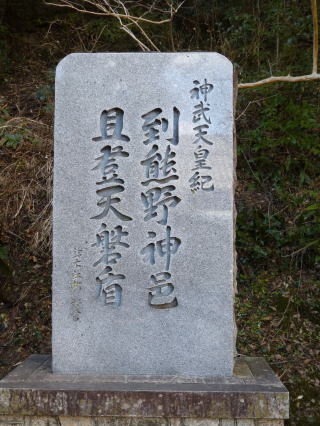 神武天皇紀
到熊野神邑
且登天磐盾